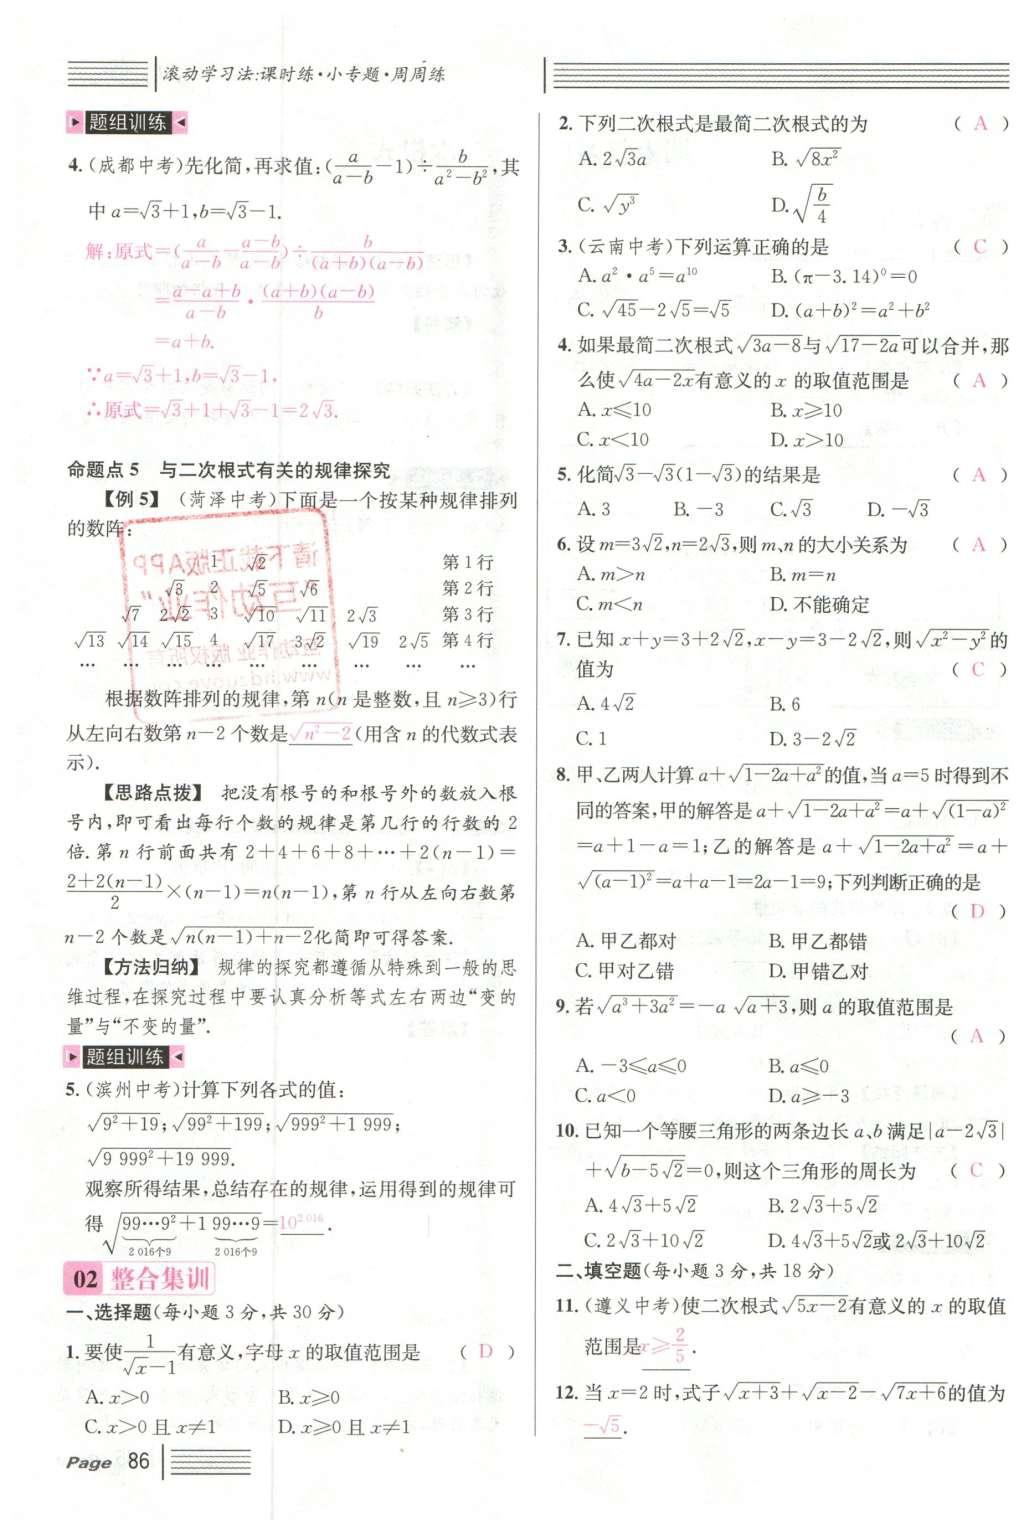 滚动学习法:课时练·小专题·周周练
题组训练
4.(成都中考)先化简,再求值:(a/(a-b)-1)÷b/(a²-b²),其
中a=√3+1,b=√3-1.
解:原式=(a/(a-b)-(a-b)/(a-b))÷b/((a+b)(a-b))
=(a-a+b)/(a-b)·((a+b)(a-b))/b
=a+b.
∵a=√3+1,b=√3-1,
∴原式=√3+1+√3-1=2√3.
命题点5 与二次根式有关的规律探究
【例5】 (菏泽中考)下面是一个按某种规律排列
的数阵:
1 √2 第1行
√3 2 √5 √6 第2行
√7 2√2 3 √10 √11 2√3 第3行
√13 √14 √15 4 √17 3√2 √19 2√5 第4行
… … … … … … … …
根据数阵排列的规律,第n(n是整数,且n≥3)行
从左向右数第n-2个数是√(n²-2)(用含n的代数式表
示).
【思路点拨】 把没有根号的和根号外的数放入根
号内,即可看出每行个数的规律是第几行的行数的2
倍.第n行前面共有2+4+6+8+…+2(n-1)=
(2+2(n-1))/2×(n-1)=n(n-1),第n行从左向右数第
n-2个数是√(n(n-1)+n-2)化简即可得答案.
【方法归纳】 规律的探究都遵循从特殊到一般的思
维过程,在探究过程中要认真分析等式左右两边“变的
量”与“不变的量”.
题组训练
5.(滨州中考)计算下列各式的值:
√(9²+19);√(99²+199);√(999²+1 999);
√(9 999²+19 999).
观察所得结果,总结存在的规律,运用得到的规律可
得√(99…9²+1 99…9)=10^2 016.
2 016个9 2 016个9
02 整合集训
一、选择题(每小题3分,共30分)
1.要使1/(√x-1)有意义,字母x的取值范围是 ( D )
A.x>0 B.x≥0
C.x>0且x≠1 D.x≥0且x≠1
Page 86
2.下列二次根式是最简二次根式的为 ( A )
A.2√(3a) B.√(8x²)
C.√(y³) D.√(b/4)
3.(云南中考)下列运算正确的是 ( C )
A.a²·a⁵=a¹⁰ B.(π-3.14)⁰=0
C.√45-2√5=√5 D.(a+b)²=a²+b²
4.如果最简二次根式√(3a-8)与√(17-2a)可以合并,那
么使√(4a-2x)有意义的x的取值范围是 ( A )
A.x≤10 B.x≥10
C.x<10 D.x>10
5.化简√3-√3(1-√3)的结果是 ( A )
A.3 B.-3 C.√3 D.-√3
6.设m=3√2,n=2√3,则m、n的大小关系为 ( A )
A.m>n B.m=n
C.m<n D.不能确定
7.已知x+y=3+2√2,x-y=3-2√2,则√(x²-y²)的
值为 ( C )
A.4√2 B.6
C.1 D.3-2√2
8.甲、乙两人计算a+√(1-2a+a²)的值,当a=5时得到不
同的答案,甲的解答是a+√(1-2a+a²)=a+√((1-a)²)
=a+1-a=1;乙的解答是a+√(1-2a+a²)=a+
√((a-1)²)=a+a-1=2a-1=9;下列判断正确的是
( D )
A.甲乙都对 B.甲乙都错
C.甲对乙错 D.甲错乙对
9.若√(a³+3a²)=-a√(a+3),则a的取值范围是
( A )
A.-3≤a≤0 B.a≤0
C.a<0 D.a≥-3
10.已知一个等腰三角形的两条边长a、b满足|a-2√3|
+√(b-5√2)=0,则这个三角形的周长为 ( C )
A.4√3+5√2 B.2√3+5√2
C.2√3+10√2 D.4√3+5√2或2√3+10√2
二、填空题(每小题3分,共18分)
11.(遵义中考)使二次根式√(5x-2)有意义的x的取值
范围是x≥2/5.
12.当x=2时,式子√(x+3)+√(x-2)-√(7x+6)的值为
-√5.